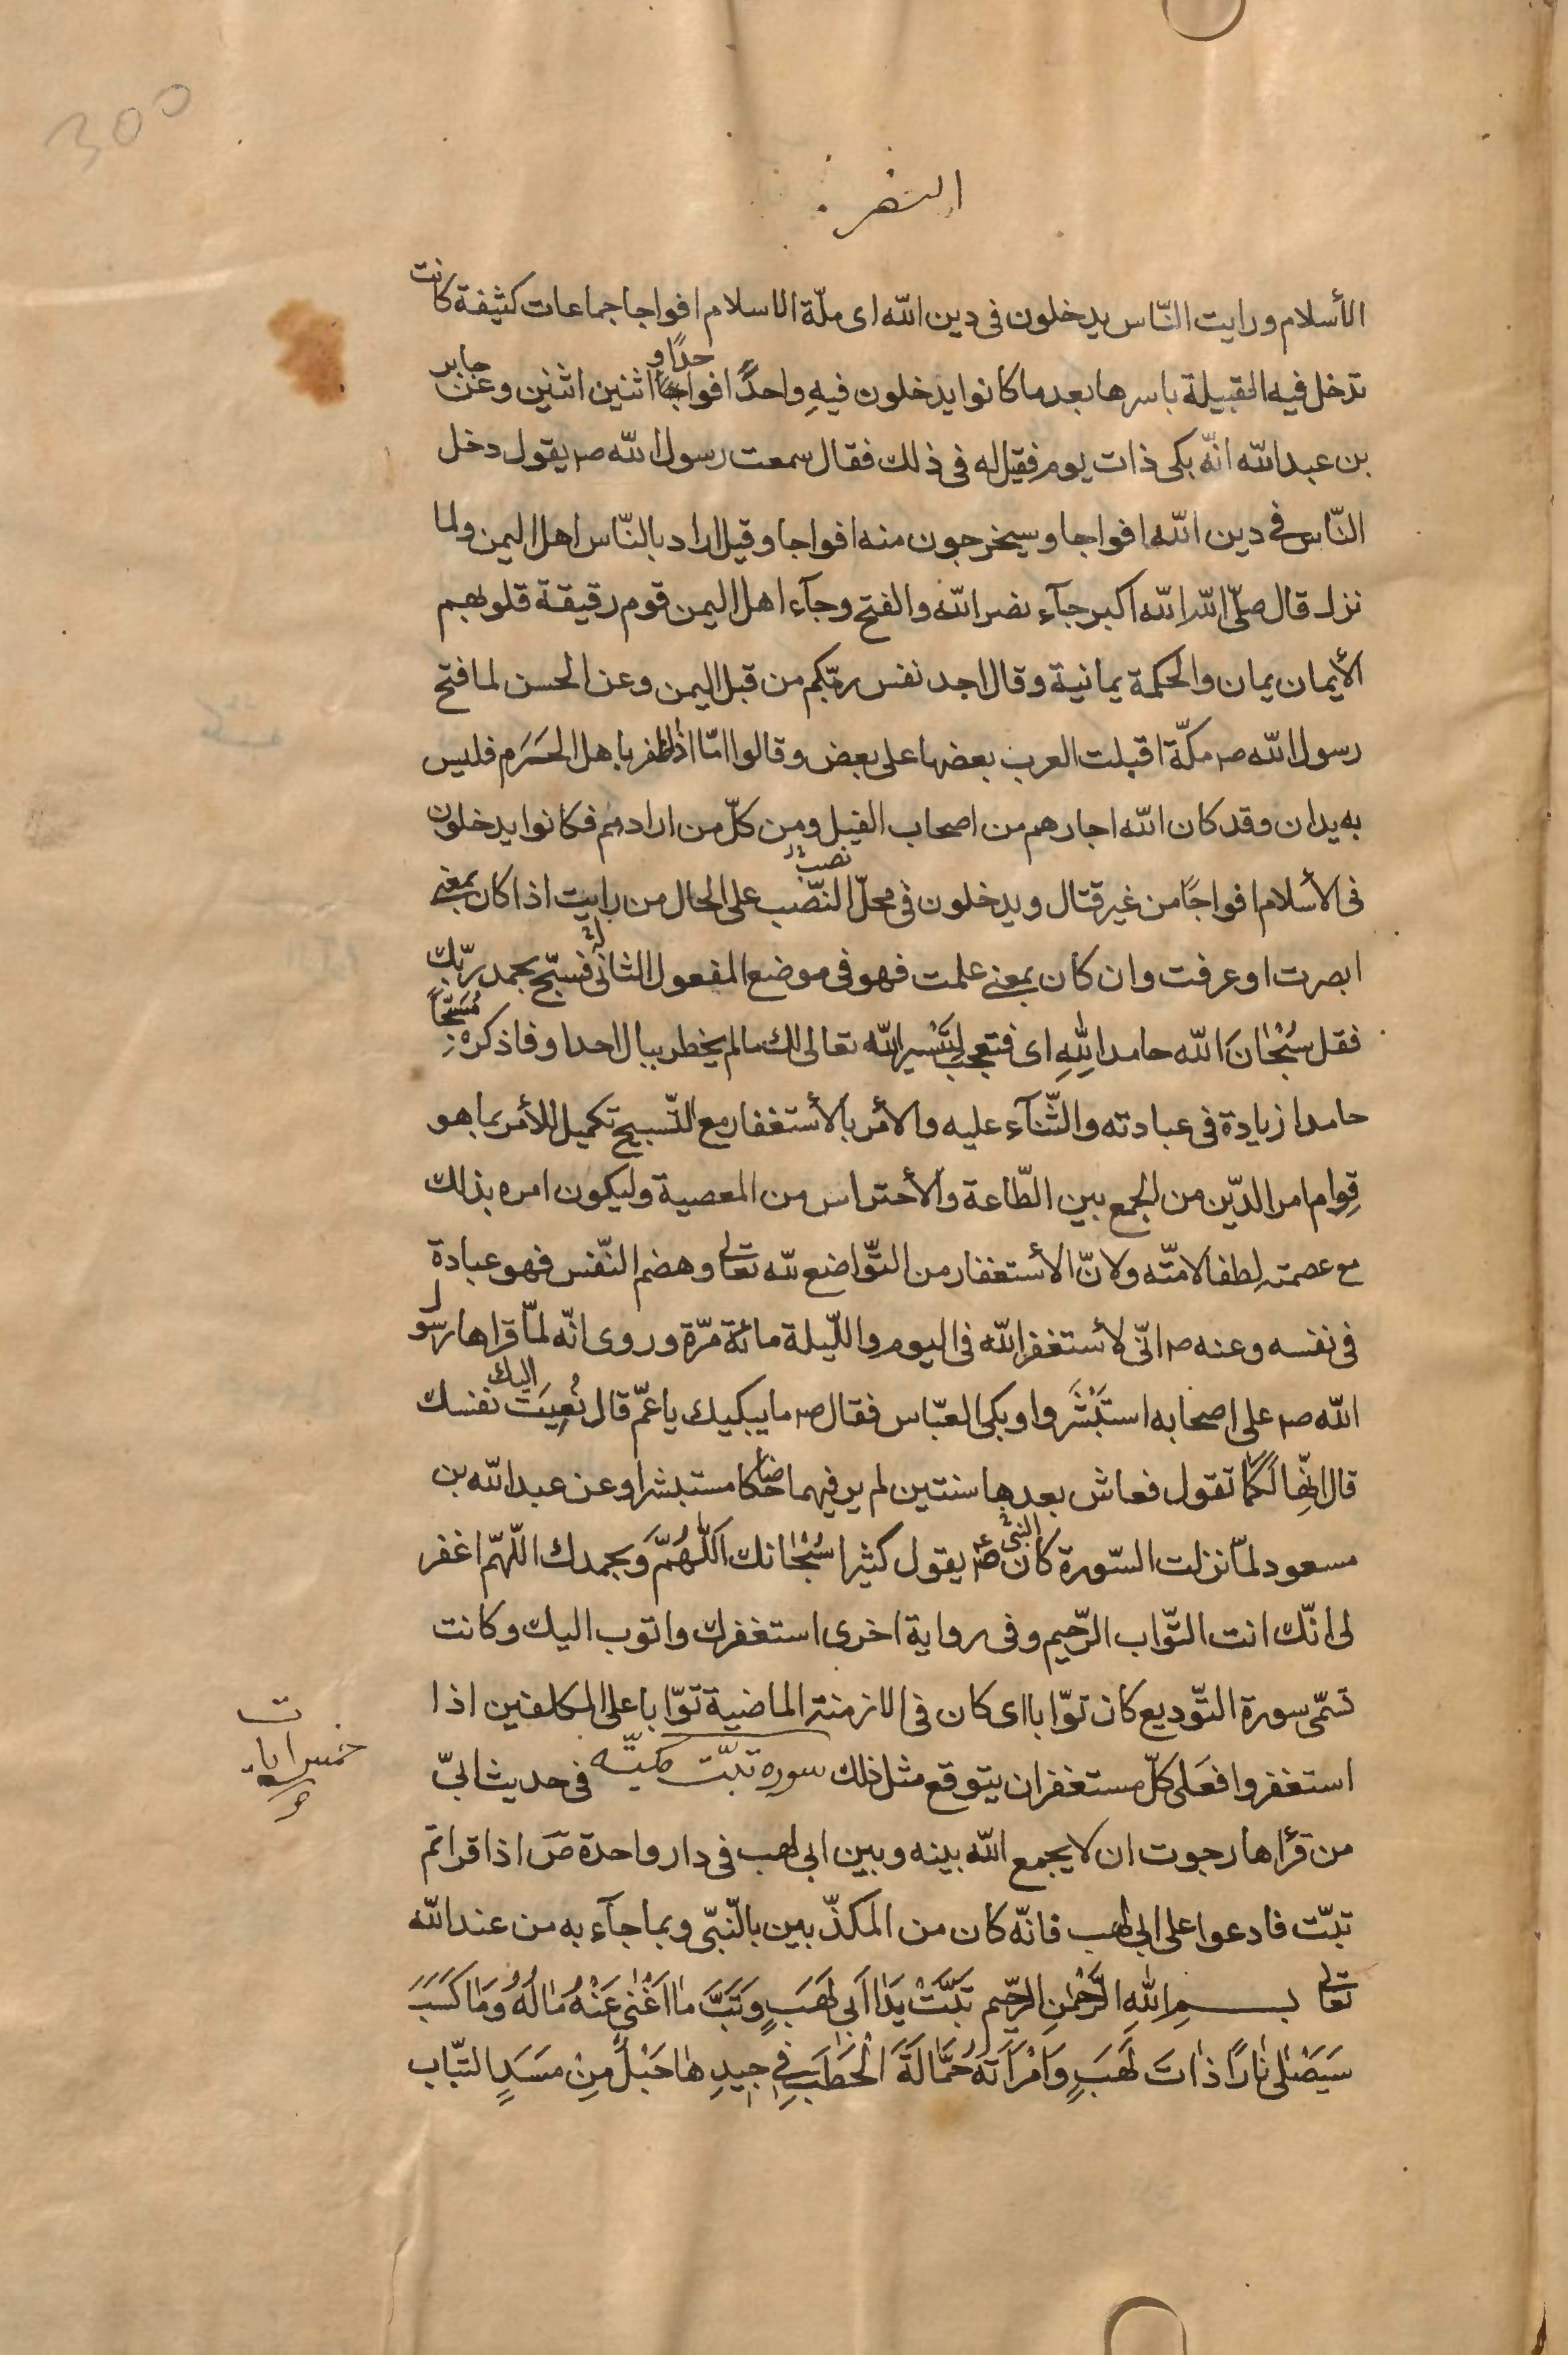 300
النصر
الأسلام ورايت النّاس يدخلون فى دين الله اى ملّة الاسلام افواجا جماعات كثيفة كانت
تدخل فيه القبيلة باسرها بعد ما كانوا يدخلون فيهِ واحدًا واحدًا و اثنين اثنين وعن جابر
بن عبدالله انّه بكى ذات يوم فقيل له فى ذلك فقال سمعت رسول الله صم يقول دخل
النّاس فى دين الله افواجا وسيخرجون منه افواجا وقيل اراد بالنّاس اهل اليمن ولما
نزل قال صلّى الله الله اكبر جآء نصر الله والفتح وجآء اهل اليمن قوم رقيقة قلوبهم
الأيمان يمان والحكمة يمانية وقال اجد نفس ربّكم من قبل اليمن وعن الحسن لما فتح
رسول الله صم مكّة اقبلت العرب بعضها على بعض وقالوا امّا اذا ظفر باهل الحَرَم فليس
به يدان وقد كان الله اجارهم من اصحاب الفيل ومن كلّ من ارادهم فكانوا يدخلون
فى الأسلام افواجًا من غير قتال ويدخلون فى محلّ النّصب نصب على الحال من رايت اذا كان بمعنى
ابصرت او عرفت وان كان بمعنى علمت فهو فى موضع المفعول الثانى فسبّح بحمد ربّك
فقل سُبْحَانَ الله حامدا لِلّهِ اى فتعجب لِتَيْسير الله تعالى لك ما لم يخطر ببال احد او فاذكره مُسَبّحًا
حامدا زيادة فى عبادته والثّنآء عليه والأمر بالأستغفار مع التّسبيح تكميل للأمر بما هو
قِوام امر الدّين من الجمع بين الطّاعة والأحتراس من المعصية وليكون امره بذلك
مع عصمته لطفا لامّته ولانّ الأستغفار من التّواضع لله تعالى وهضم النّفس فهو عبادة
فى نفسه وعنه صم انّى لأستغفر الله فى اليوم والليلة مائة مرّة وروى انّه لمّا قراها رسول
الله صم على اصحابه استَبْشَروا وبكى العبّاس فقال صم ما يبكيك يا عمّ قال نُعِيَت اليك نفسك
قال انّها لَكَما تقول فعاش بعدها سنتين لم ير فيهما ضاحكا مستبشرا وعن عبدالله بن
مسعود لمّا نزلت السّورة كان النبى صم يقول كثيرا سُبْحَانك اَللّهُمَّ وَبحمدك اللّهمّ اغفر
لى انّك انت التّواب الرّحيم وفى رواية اخرى استغفرك واتوب اليك وكانت
تسمّى سورة التّوديع كان توّابا اى كان فى الازمنة الماضية توّابا على المكلفين اذا
استغفروا فعَلى كلّ مستغفر ان يتوقع مثل ذلك سورة تبّت مكيّه فى حديث ابىّ
خمس ايات
من قرأها رجوت ان لا يجمع الله بينه وبين ابى لهب فى دار واحدة صَ اذا قراتم
تبّت فادعوا على ابى لهب فانّه كان من المكذّبين بالنّبىّ وبما جآء به من عند الله
تعالى بسمِ اللهِ الرَّحْمنِ الرحّيم تَبَّتْ يَدَا اَبى لَهَبٍ وَتَبَّ مَا اَغْنى عَنْهُ مَالُهُ وَمَا كَسَبَ
سَيَصْلى نَارًا ذاتَ لَهَبٍ وَامْرَاَتُهُ حَمَّالَةَ الْحَطَبِ فِى جِيدِهَا حَبْلٌ مِنْ مَسَدٍ التّباب